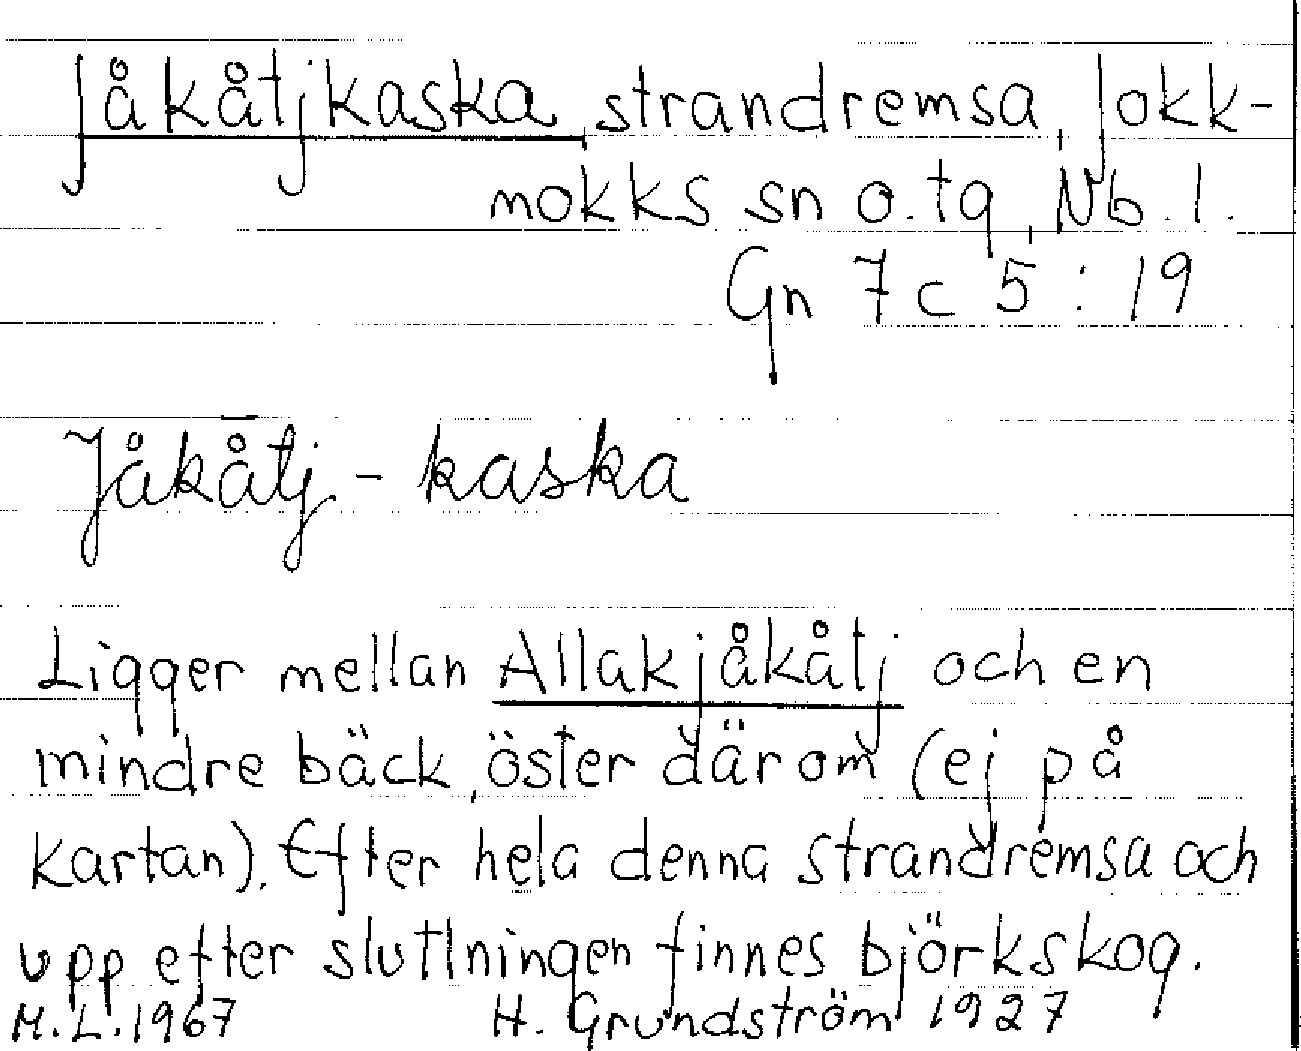 Jåkåtjkaska, strandremsa, Jokk-
mokks sn o. tg, Nb. l.
Gn 7c 5:19
Jåkåtj - kaska
Ligger mellan Allakjåkåtj och en
mindre bäck, öster därom (ej på
kartan). Efter hela denna strandremsa och
upp efter sluttningen finnes björkskog.
M.L. 1967 H. Grundström 1927